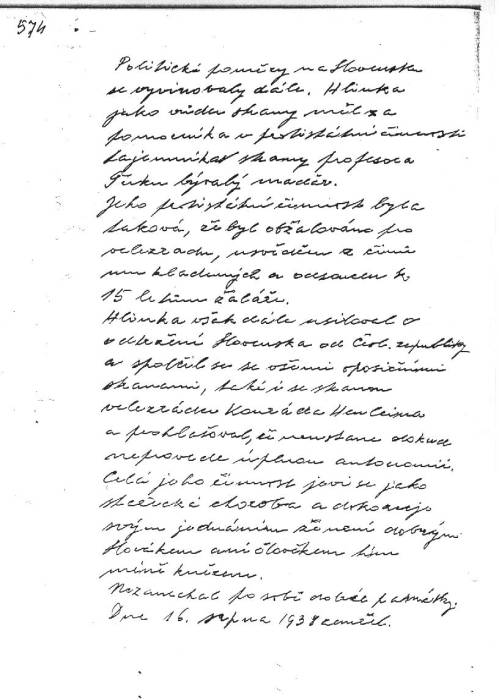 574
Politické poměry na Slovensku
se vyvinovaly dále. Hlinka
jako vůdce strany měl za
pomocníka v protistátní činnosti
tajemníka strany profesora
Tuku bývalý maďar.
Jeho protistátní činnost byla
taková, že byl obžalován pro
velezradu, usvědčen z činů
mu kladených a odsouzen k
15 letům žaláře.
Hlinka však dále usiloval o
odtržení Slovenska od Čsl. republiky
a spolčil se se všemi oposičními
stranami, také i se stranou
velezrádce Konráda Henleina
a prohlašoval, že neustane dokud
neprovede úplnou autonomii.
Celá jeho činnost jeví se jako
stařecká choroba a dokazuje
svým jednáním že není dobrým
Slovákem ani člověkem tím
méně knězem.
Nezanechal po sobě dobré památky.
Dne 16. srpna 1938 zemřel.